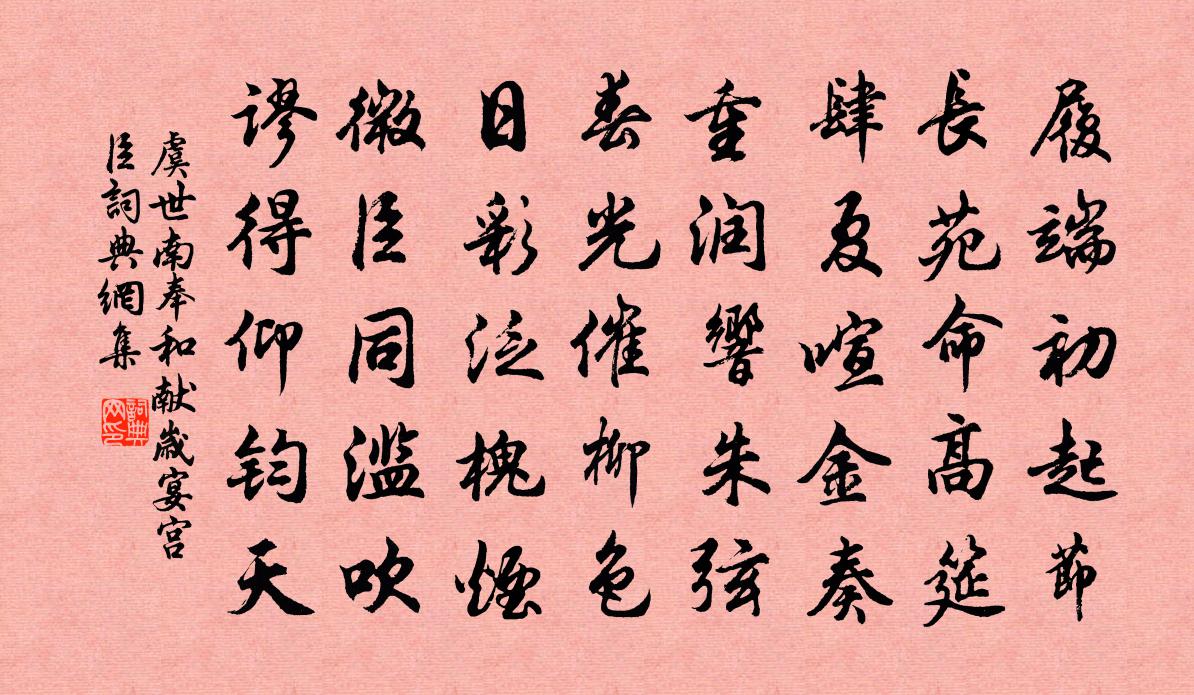 履端初起節
長苑命高筵
肆夏喧金奏
重润響朱弦
春光催柳色
日彩泛槐煙
微臣同滥吹
謬得仰钧天
虞世南奉和献歲宴宫
臣詞典網集
詞典网印